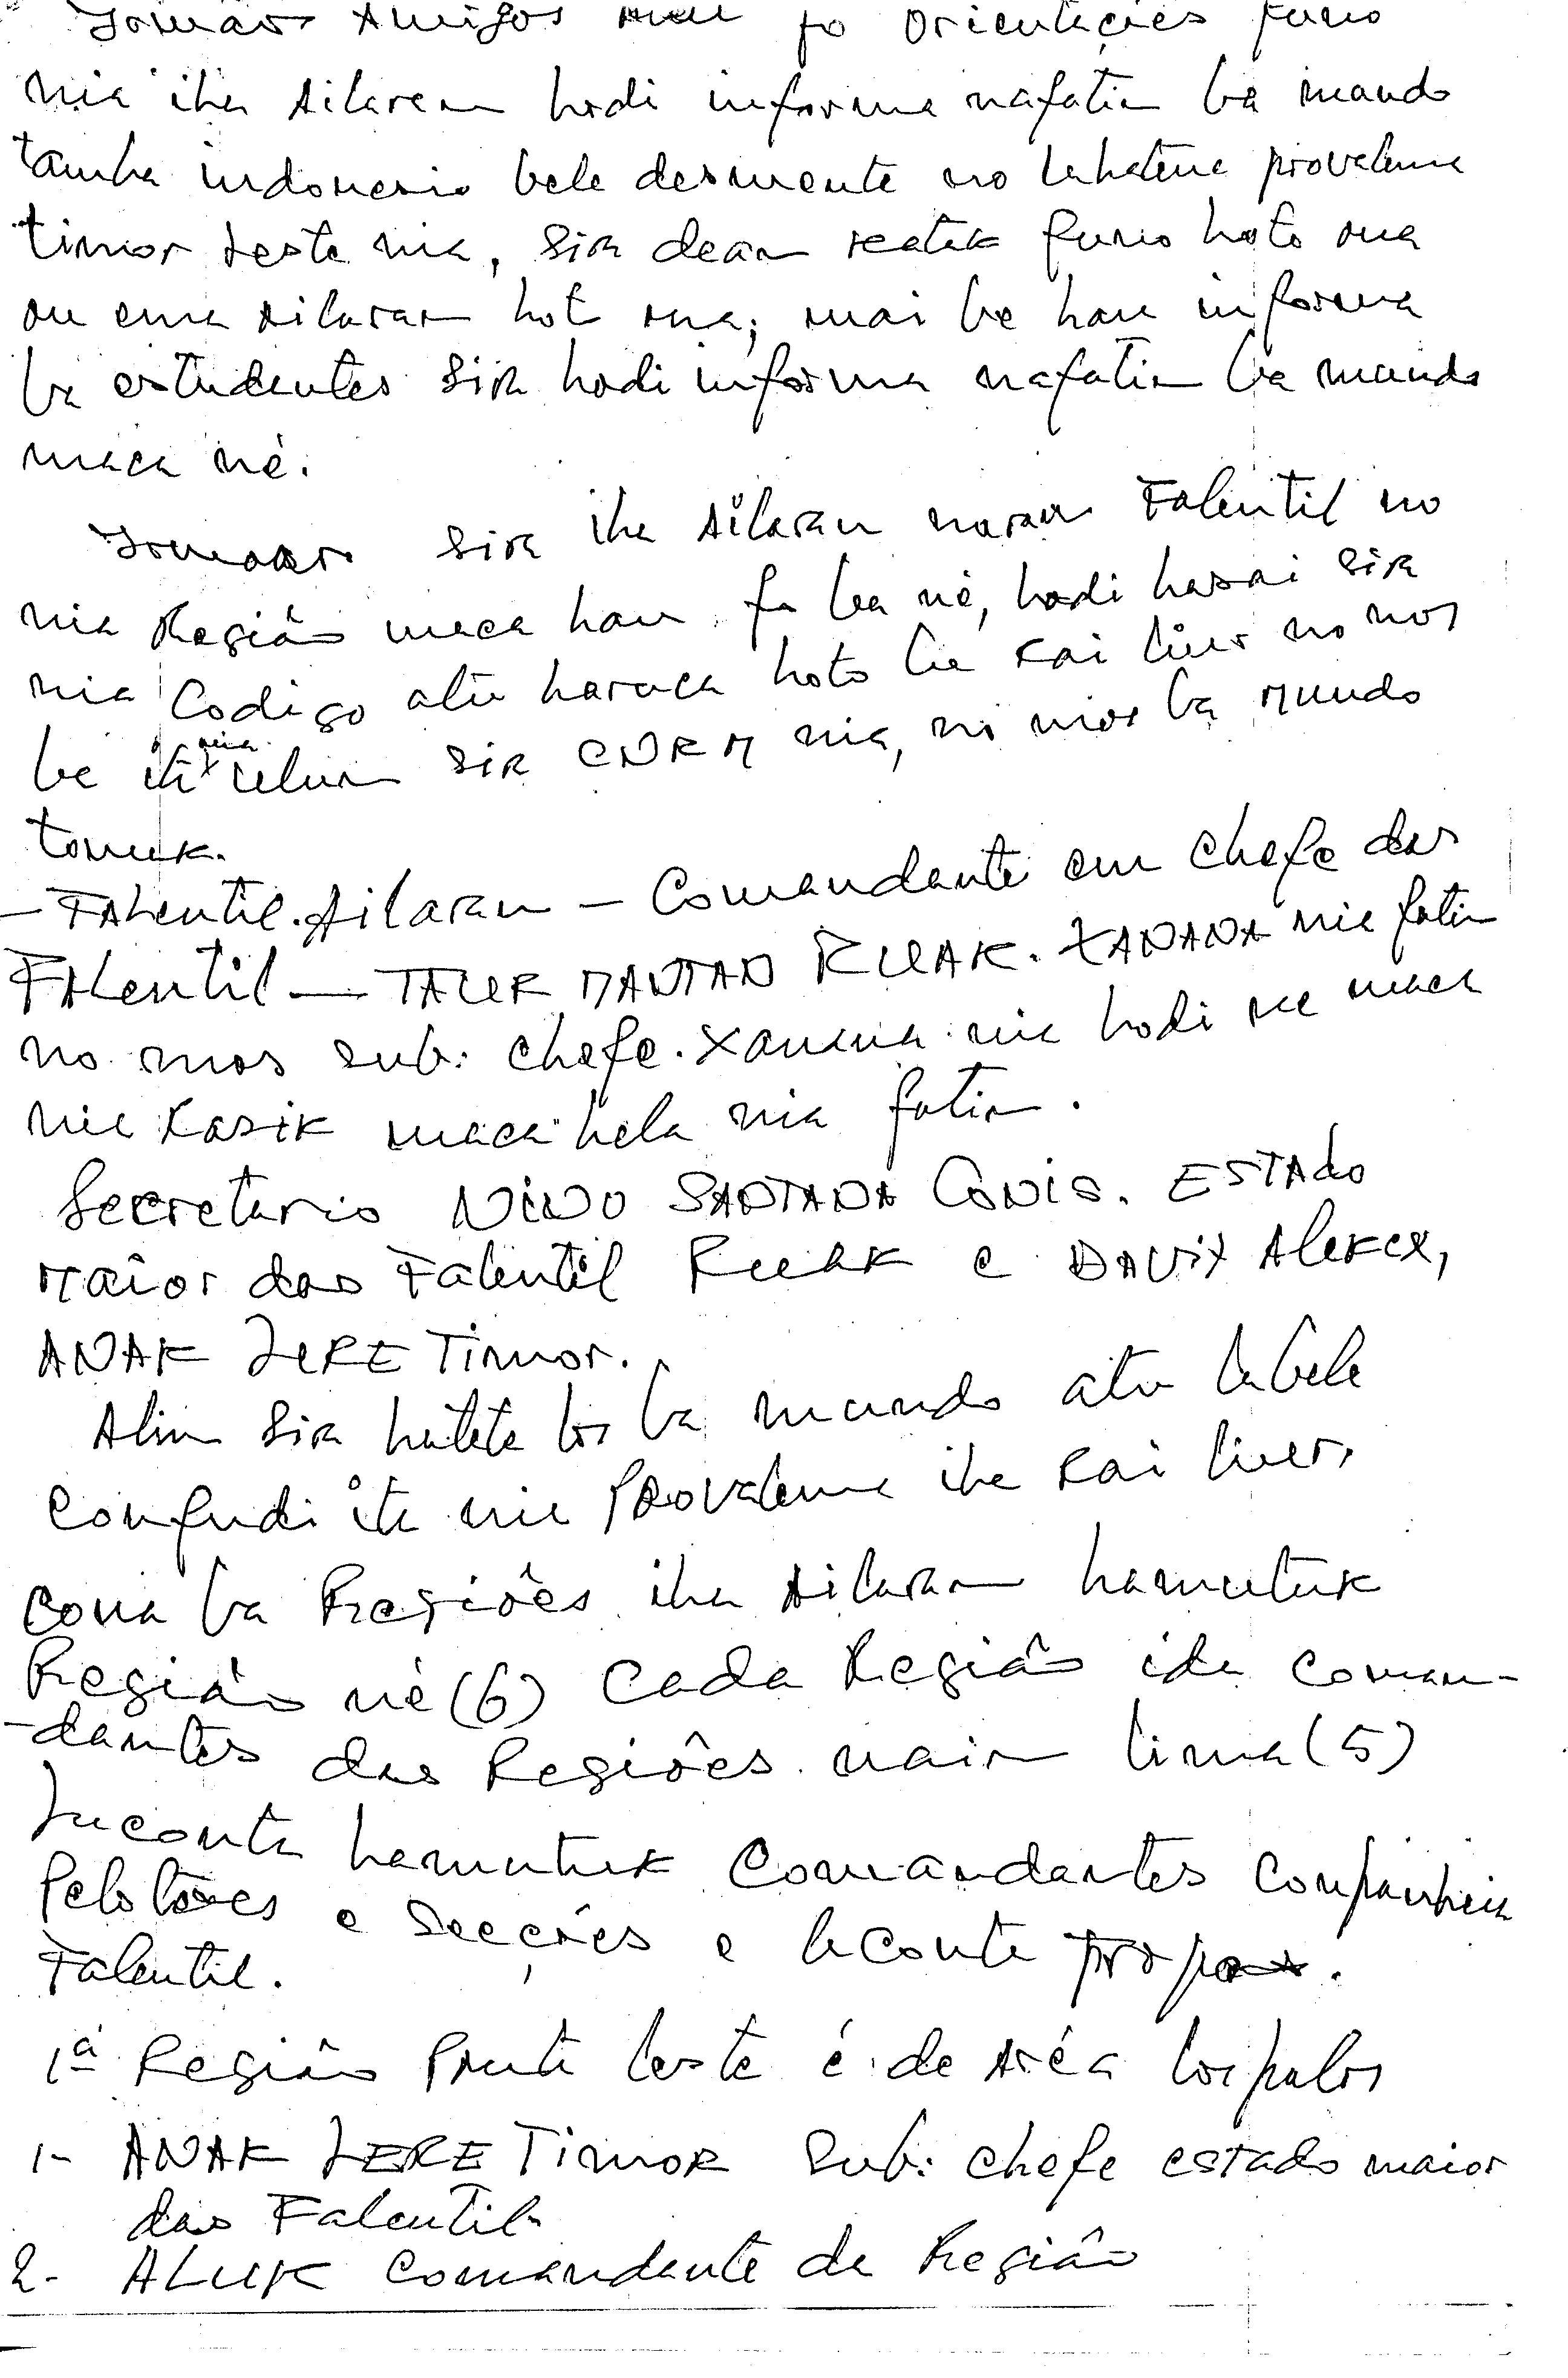 Irmaos Amigos hau fo Orientações funo
nia iha Ailaran hodi informa nafatin ba mundo
tamba indonesio bele desmente no lahatene provalema
timor Leste nia, Sira dean katak funo hoto ona
ou ema Ailaran hot ona; mai be hau informa
ba estudentes Sira hodi informa nafatin ba mundo
maca né.
Irmaos Sira iha Ailaran naran Falentil no
nia Região maca hau fo ba né, hodi hasai Sira
nia Codigo atu haruca hoto ba Rai liur no mos
be ita nia relun Sira CNRM nia, no mos ba Mundo
tomak.
– FALentil. Ailaran – Comandante em Chefe das
FALentil — TAUR MANTAN RUAK. XANANA nia fatin
no mos sub: chefe. Xanana nia hodi ne maca
nia Kasik maca hela nia fatin.
Secretario NINO SANTANA CONIS. ESTAdo
Maior das Falentil Ruak e DAVIX ALekex,
ANAK LERE Timor.
Alin Sira hatete los ba mundo atu labele
confudi ita nia Provalema iha Rai liur,
cona ba Regiões iha Ailaran hamutuk
Região né (6) Cada Região ida coman-
-dantes das Regiões nain lima (5)
Laconta hamutuk Comandantes Companheia
Pelotões e Secções e laconta tropas.
Falentil.
1ª Região Ponta leste é de Aréa lospalos
1- ANAK LERE TimoR Sub: chefe estado maior
das Falentil-
2- ALUK Comandante da Região